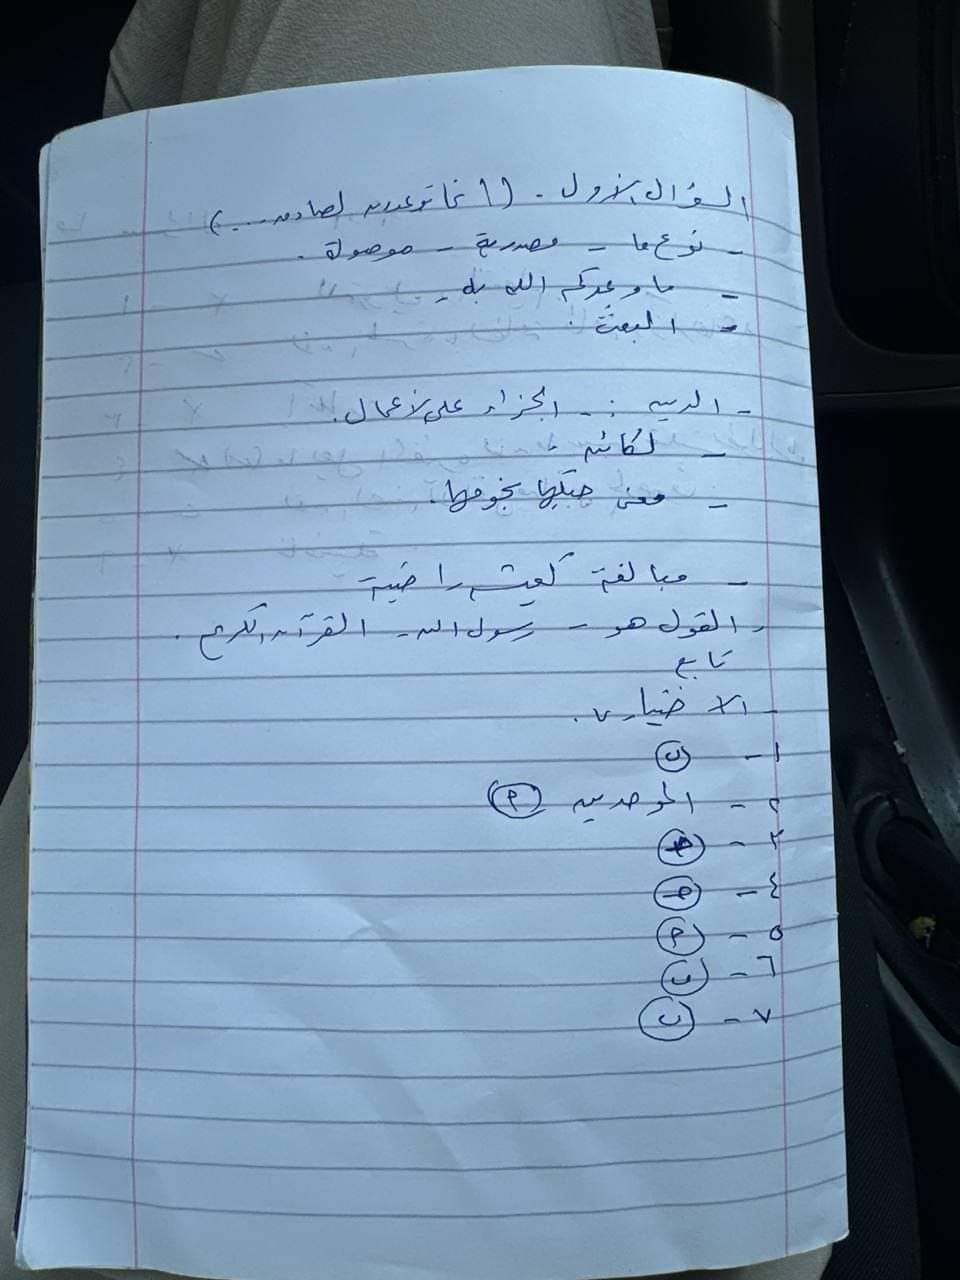 السؤال الأول - (إنما توعدون لصادق ...)
- نوع ما - مصدرية - موصولة .
- ما وعدكم الله به .
- البعث .
- الدين : - الجزاء على الأعمال .
- لكائن
- معنى حبكها نجومها .
- مبالغة كعيشة راضية
- القول هو - رسول الله - القرآن الكريم .
تابع
- الاختيار ٧ .
١ - ب
٢ - الموحدين م
٣ - ج
٤ - ج
٥ - م
٦ - ب
٧ - ب